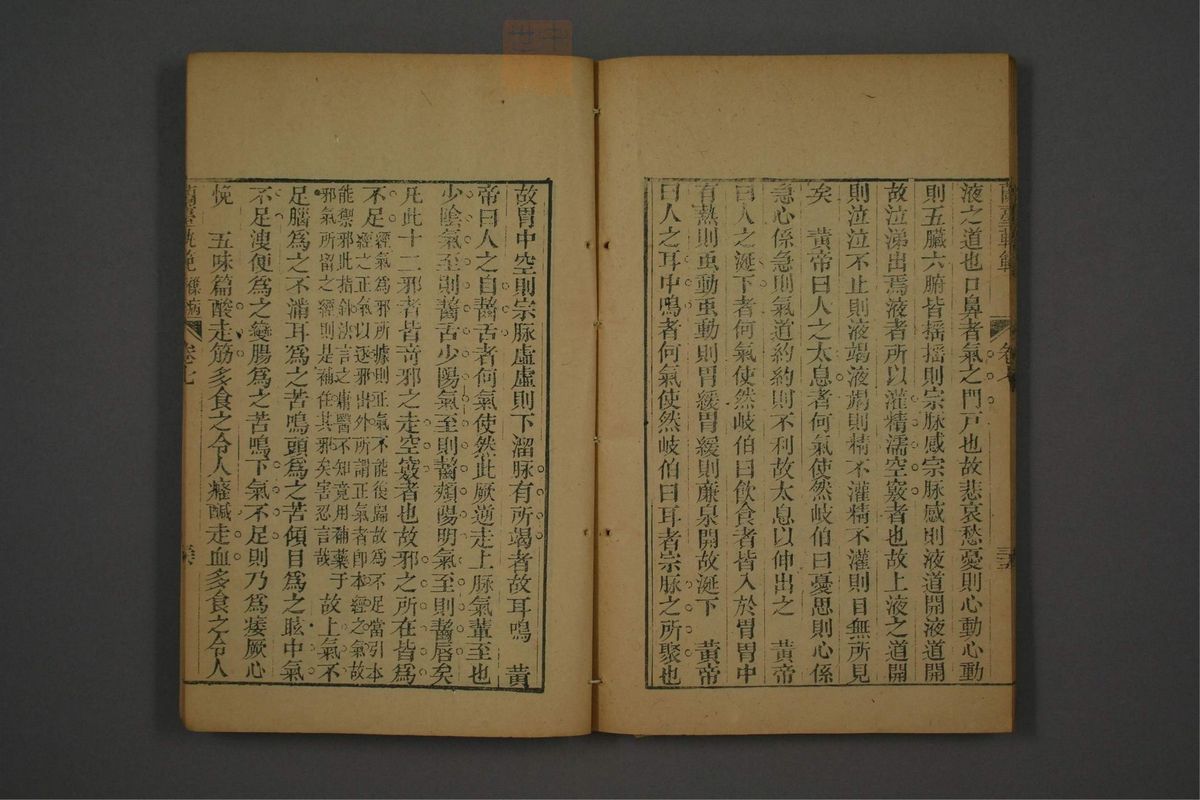 液之道也口鼻者氣之門戸也故悲哀愁憂則心動心動
則五臟六腑皆揺揺則宗脉感宗脉感則液道開液道開
故泣涕出焉液者所以灌精濡空竅者也故上液之道開
則泣泣不止則液竭液竭則精不灌精不灌則目無所見
矣　黄帝曰人之太息者何氣使然岐伯曰憂思則心係
急心係急則氣道約約則不利故太息以伸出之　黄帝
曰人之涎下者何氣使然岐伯曰飲食者皆入於胃胃中
有熱則䖝動䖝動則胃緩胃緩則廉泉開故涎下　黄帝
曰人之耳中鳴者何氣使然岐伯曰耳者宗脉之所聚也
故胃中空則宗脉虛虛則下溜脉有所竭者故耳鳴　黄
帝曰人之自齧舌者何氣使然此厥逆走上脉氣輩至也
少陰氣至則齧舌少陽氣至則齧頰陽明氣至則齧唇矣
凡此十二邪者皆竒邪之走空竅者也故邪之所在皆爲
不足經氣爲邪所據則正氣不能復歸故爲不足當引本
經之正氣以逐邪出外所謂正氣者卽本經之氣故
能禦邪此指鍼決言之庸醫不知竟用補藥于
邪氣所留之經則是補住其邪矣害忍言哉故上氣不
足腦爲之不滿耳爲之苦鳴頭爲之苦傾目爲之眩中氣
不足溲便爲之變腸爲之苦鳴下氣不足則乃爲痿厥心
悗　五味篇酸走筋多食之令人癃鹹走血多食之令人
蘭臺軌範　雜病　卷七